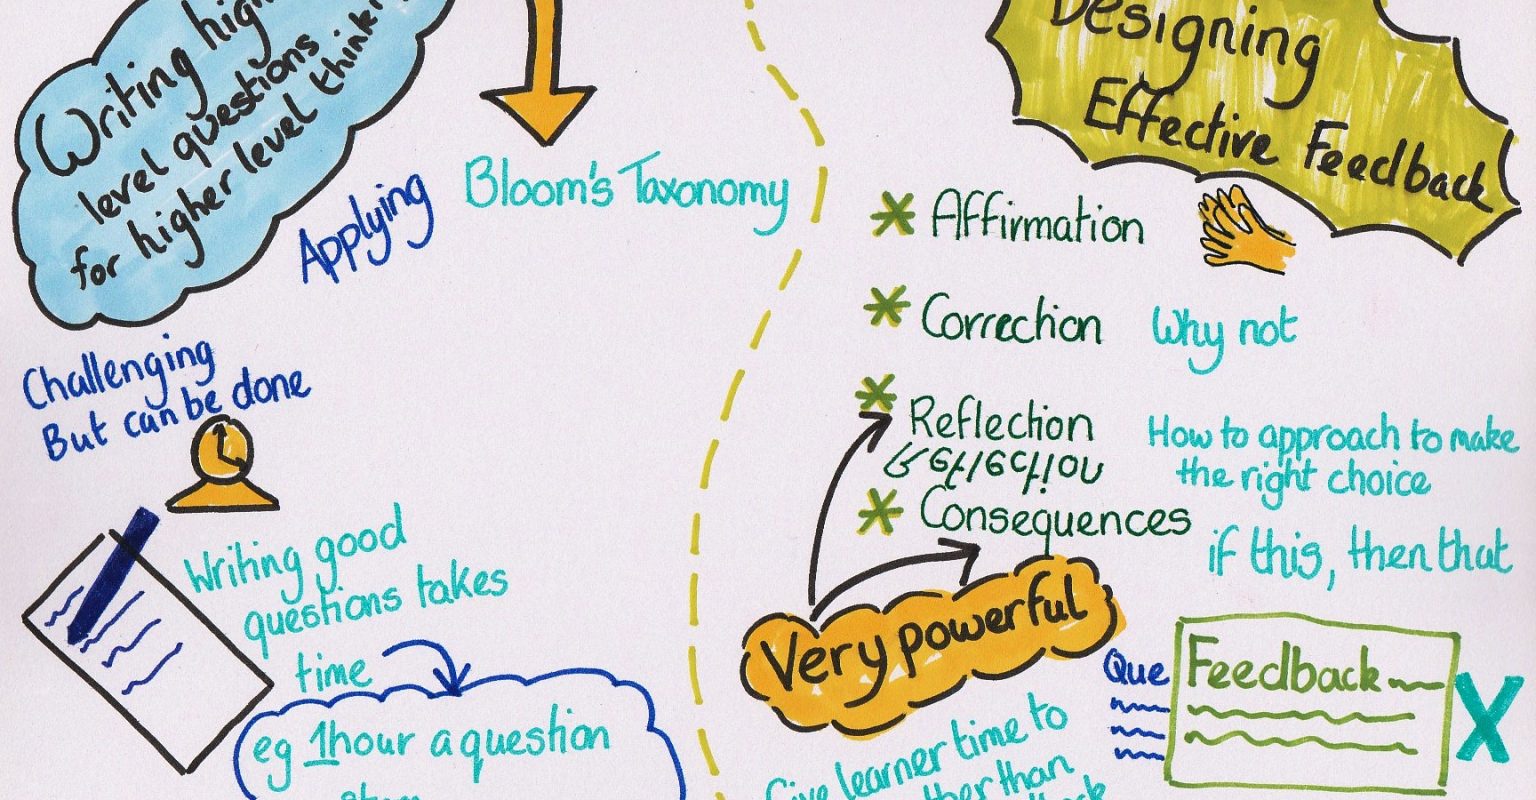 Writing high
level questions
for higher level thinki
Applying
Bloom's Taxonomy
Challenging
But can be done
Writing good
questions takes
time
eg 1hour a question
stem
Designing
Effective Feedback
Affirmation
Correction
Why not
Reflection
Reflection
How to approach to make
the right choice
Consequences
if this, then that
Very powerful
Que
Feedback
X
Give learner time to
ther than